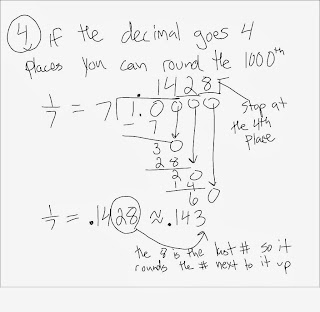 ④ if the decimal goes 4
places you can round the 1000th
.1428
1/7 = 7⟌1.0000
Stop at
the 4th
place
- 7
30
28
20
14
60
1/7 = .1428 ≈ .143
the 8 is the last # so it
rounds the # next to it up